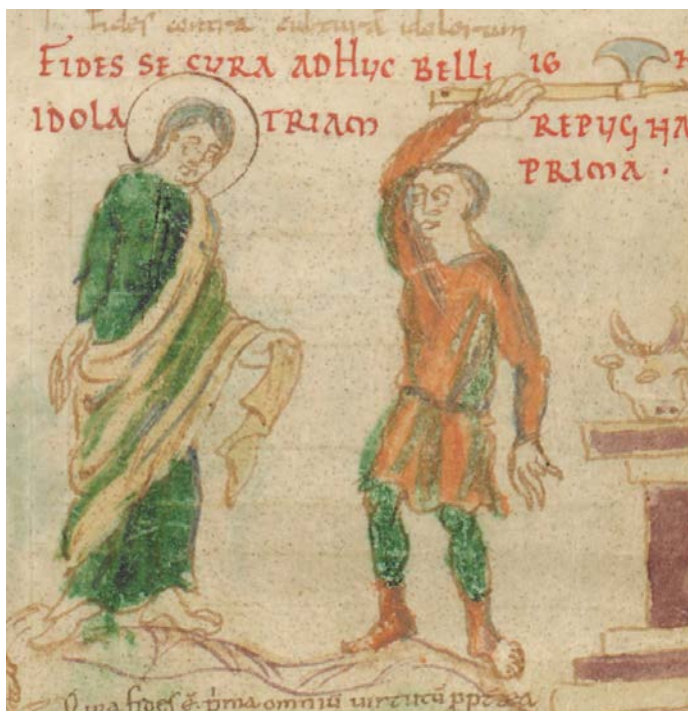 fides contra culturā idolorum
FIDES SE CVRA ADHVC BELLI IG H
IDOLA TRIAM REPVGNA
PRIMA ·
fides ē p̄ma omniū uirtutū